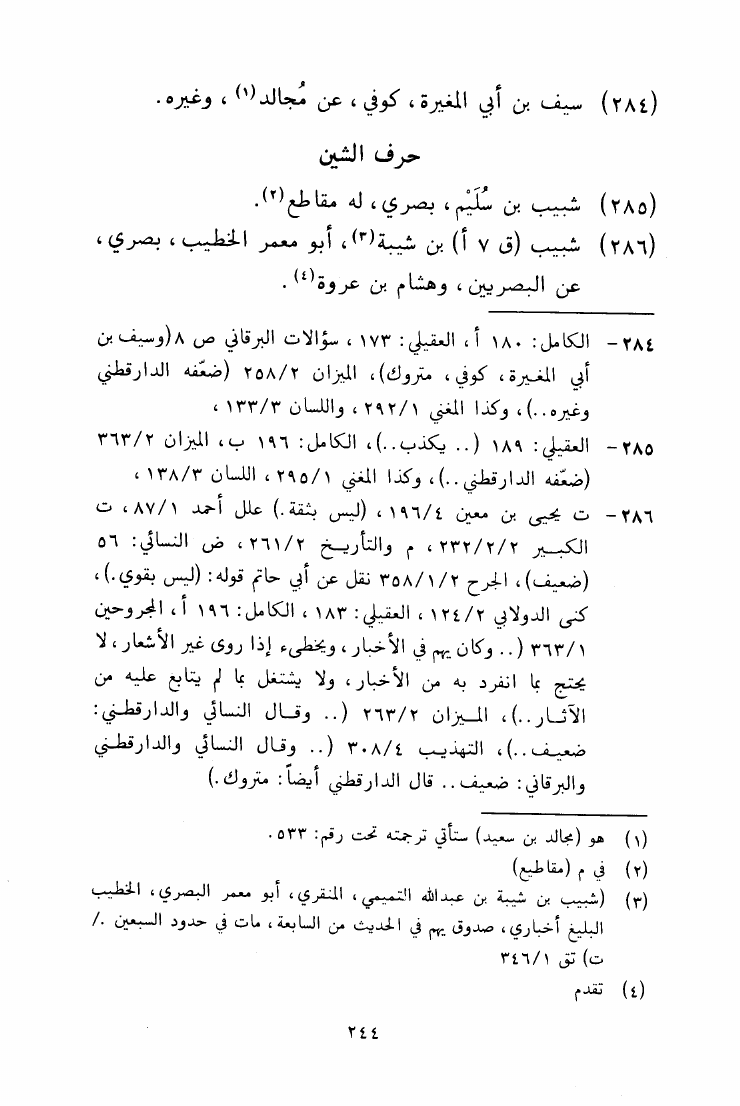 (٢٨٤) سيف بن أبي المغيرة، كوفي، عن مُجالد(١)، وغيره.
حرف الشين
(٢٨٥) شبيب بن سُلَيْم، بصري، له مقاطع(٢).
(٢٨٦) شبيب (ق ٧ أ) بن شيبة(٣)، أبو معمر الخطيب، بصري،
عن البصريين، وهشام بن عروة(٤).
٢٨٤- الكامل: ١٨٠ أ، العقيلي: ١٧٣، سؤالات البرقاني ص ٨ (وسيف بن
أبي المغيرة، كوفي، متروك)، الميزان ٢٥٨/٢ (ضعّفه الدارقطني
وغيره..)، وكذا المغني ٢٩٢/١، واللسان ١٣٣/٣،
٢٨٥- العقيلي: ١٨٩ (.. يكذب..)، الكامل: ١٩٦ ب، الميزان ٣٦٣/٢
(ضعّفه الدارقطني..)، وكذا المغني ٢٩٥/١، اللسان ١٣٨/٣،
٢٨٦- ت يحيى بن معين ١٩٦/٤، (ليس بثقة.) علل أحمد ٨٧/١، ت
الكبير ٢٣٢/٢/٢، م والتأريخ ٢٦١/٢، ض النسائي: ٥٦
(ضعيف)، الجرح ٣٥٨/١/٢ نقل عن أبي حاتم قوله: (ليس بقوي.)،
كنى الدولابي ١٢٤/٢، العقيلي: ١٨٣، الكامل: ١٩٦ أ، المجروحين
٣٦٣/١ (.. وكان يهم في الأخبار، ويخطىء إذا روى غير الأشعار، لا
يحتج بما انفرد به من الأخبار، ولا يشتغل بما لم يتابع عليه من
الآثار..)، الميزان ٢٦٣/٢ (.. وقال النسائي والدارقطني:
ضعيف..)، التهذيب ٣٠٨/٤ (.. وقال النسائي والدارقطني
والبرقاني: ضعيف.. قال الدارقطني أيضاً: متروك.)
(١) هو (مجالد بن سعيد) ستأتي ترجمته تحت رقم: ٥٣٣.
(٢) في م (مقاطيع)
(٣) (شبيب بن شيبة بن عبدالله التميمي، المنقري، أبو معمر البصري، الخطيب
البليغ أخباري، صدوق يهم في الحديث من السابعة، مات في حدود السبعين ./
ت) تق ٣٤٦/١
(٤) تقدم
٢٤٤